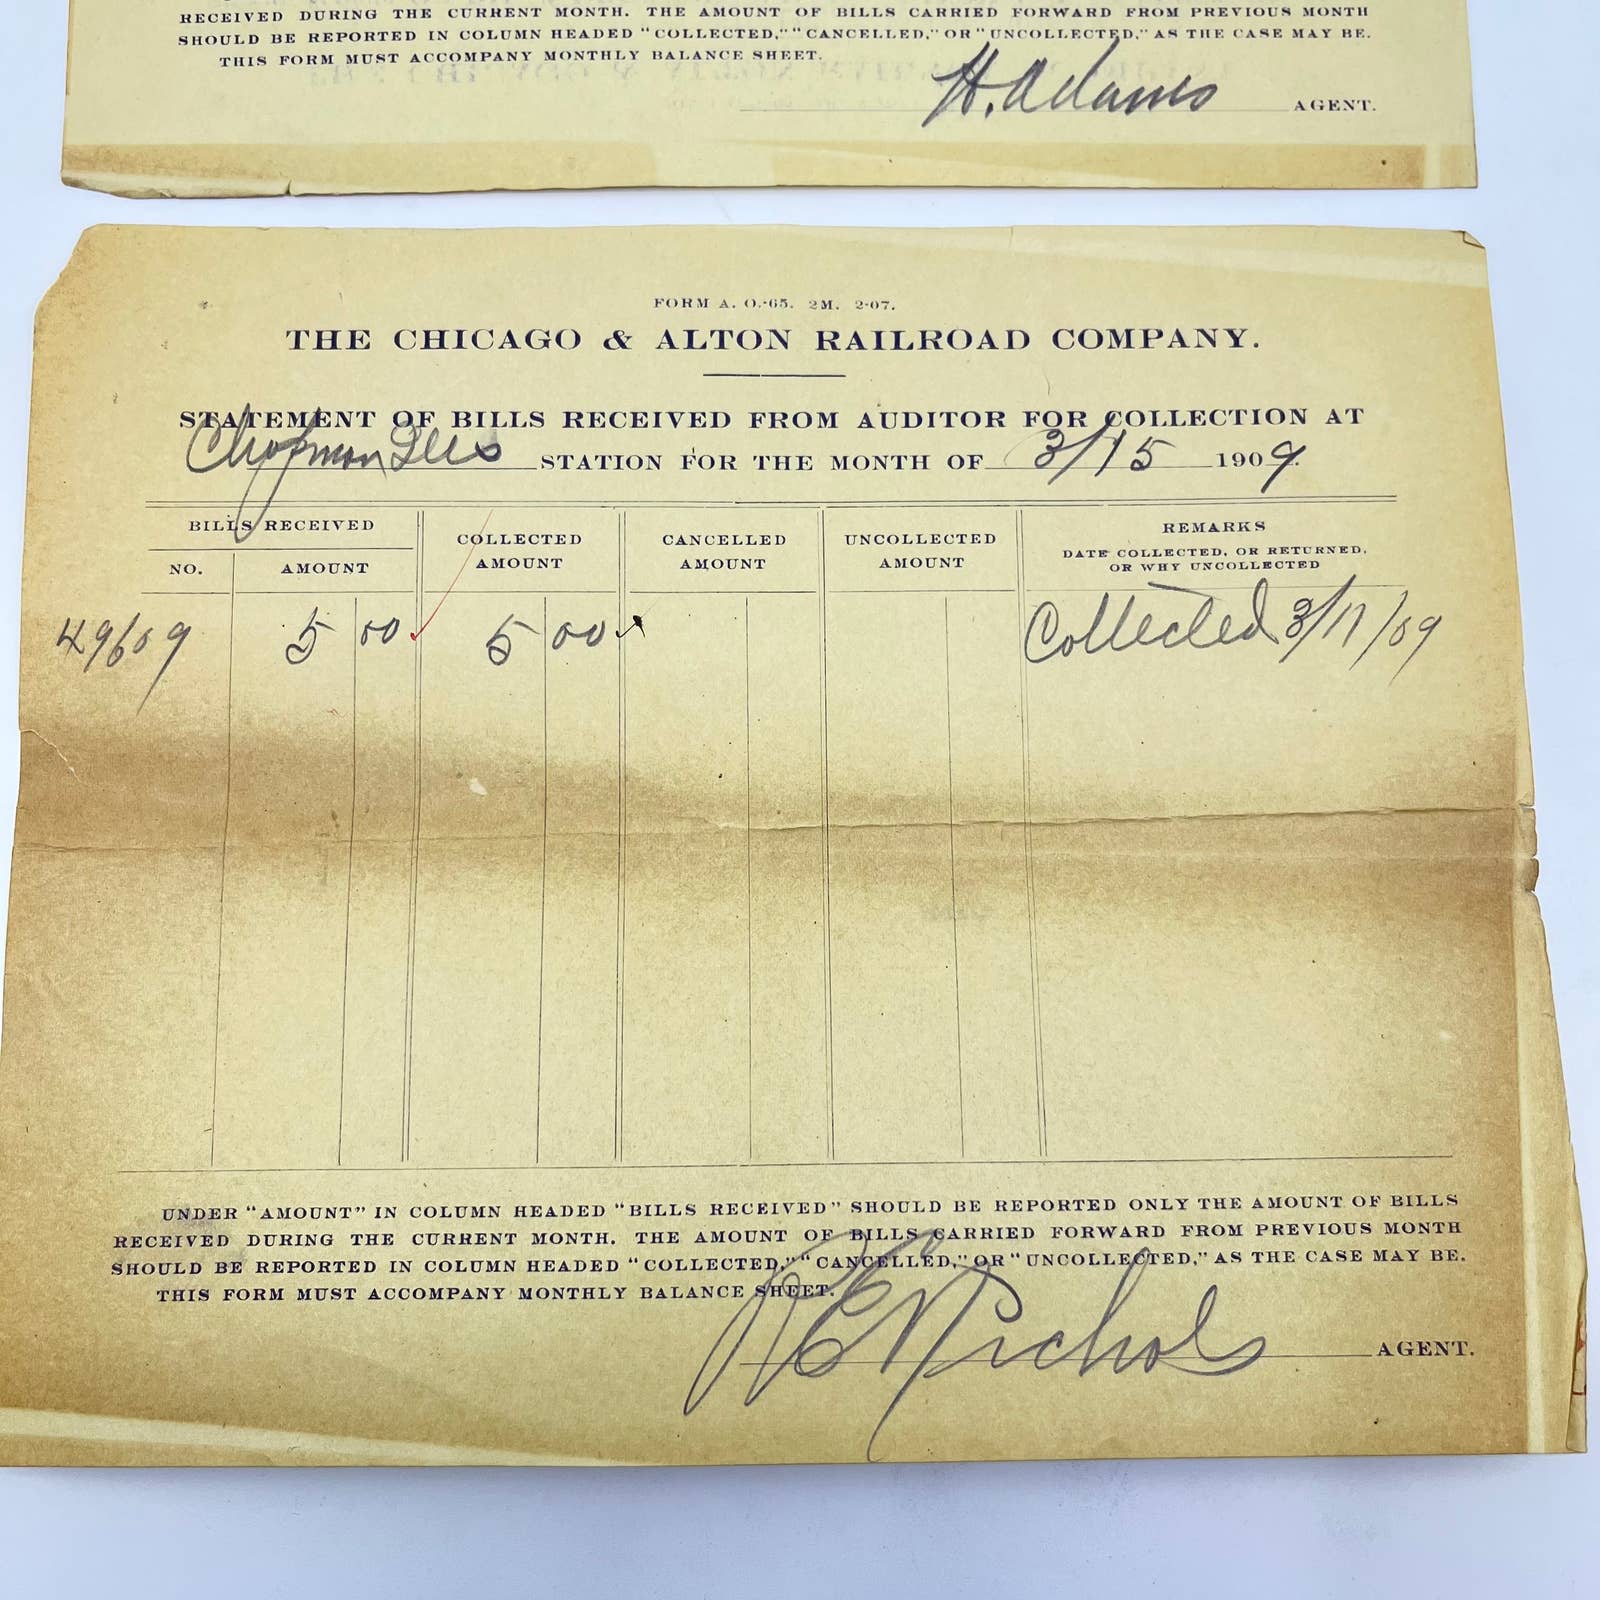 RECEIVED DURING THE CURRENT MONTH. THE AMOUNT OF BILLS CARRIED FORWARD FROM PREVIOUS MONTH
SHOULD BE REPORTED IN COLUMN HEADED "COLLECTED," "CANCELLED," OR "UNCOLLECTED," AS THE CASE MAY BE.
THIS FORM MUST ACCOMPANY MONTHLY BALANCE SHEET.
H. Adams AGENT.
FORM A. O.-65. 2M. 2-07.
THE CHICAGO & ALTON RAILROAD COMPANY.
STATEMENT OF BILLS RECEIVED FROM AUDITOR FOR COLLECTION AT
Chapman Ills STATION FOR THE MONTH OF 3/15 1909.
BILLS RECEIVED
NO. AMOUNT
COLLECTED
AMOUNT
CANCELLED
AMOUNT
UNCOLLECTED
AMOUNT
REMARKS
DATE COLLECTED, OR RETURNED,
OR WHY UNCOLLECTED
49609 5 00 5 00 Collected 3/17/09
UNDER "AMOUNT" IN COLUMN HEADED "BILLS RECEIVED" SHOULD BE REPORTED ONLY THE AMOUNT OF BILLS
RECEIVED DURING THE CURRENT MONTH. THE AMOUNT OF BILLS CARRIED FORWARD FROM PREVIOUS MONTH
SHOULD BE REPORTED IN COLUMN HEADED "COLLECTED," "CANCELLED," OR "UNCOLLECTED," AS THE CASE MAY BE.
THIS FORM MUST ACCOMPANY MONTHLY BALANCE SHEET.
R E Nichols AGENT.